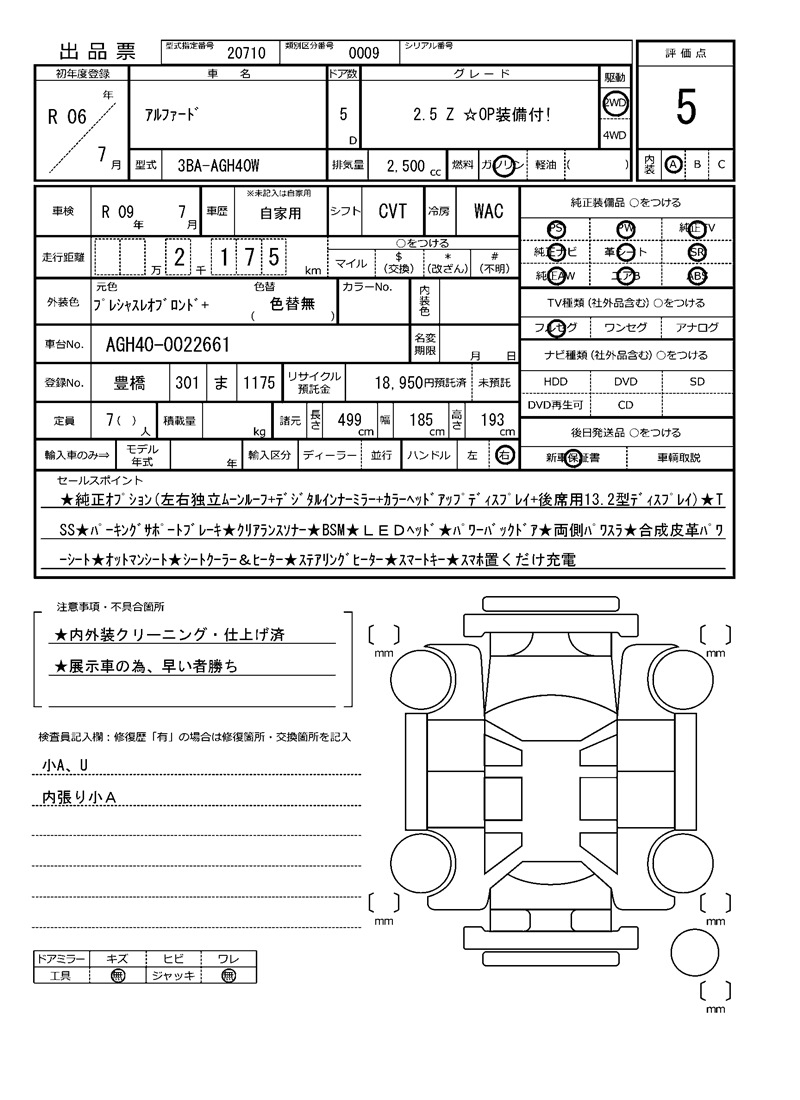 出品票 型式指定番号 20710 類別区分番号 0009 シリアル番号
評価点
5
内装 A B C
初年度登録 車名 ドア数 グレード 駆動
R 06 年 7 月 アルファード 5 D 2.5 Z ☆OP装備付! 2WD 4WD
型式 3BA-AGH40W 排気量 2,500 cc 燃料 ガソリン 軽油 ( )
車検 R 09 年 7 月 車歴 ※未記入は自家用 自家用 シフト CVT 冷房 WAC
走行距離 万 2 千 1 7 5 km ○をつける
マイル $ (交換) * (改ざん) # (不明)
外装色 元色 プレシャスレオブロンド+ 色替 ( 色替無 ) カラーNo. 内装色
車台No. AGH40-0022661 名変期限 月 日
登録No. 豊橋 301 ま 1175 リサイクル預託金 18,950円預託済 未預託
定員 7( ) 人 積載量 kg 諸元 長さ 499 cm 幅 185 cm 高さ 193 cm
輸入車のみ⇒ モデル年式 年 輸入区分 ディーラー 並行 ハンドル 左 右
純正装備品 ○をつける
PS PW 純正TV
純正ナビ 革シート SR
純正AW エアB ABS
TV種類(社外品含む)○をつける
フルセグ ワンセグ アナログ
ナビ種類(社外品含む)○をつける
HDD DVD SD
DVD再生可 CD
後日発送品 ○をつける
新車保証書 車輌取説
セールスポイント
★純正オプション(左右独立ムーンルーフ+デジタルインナーミラー+カラーヘッドアップディスプレイ+後席用13.2型ディスプレイ)★T
SS★パーキングサポートブレーキ★クリアランスソナー★BSM★ＬＥＤヘッド★パワーバックドア★両側パワスラ★合成皮革パワ
ーシート★オットマンシート★シートクーラー&ヒーター★ステアリングヒーター★スマートキー★スマホ置くだけ充電
注意事項・不具合箇所
★内外装クリーニング・仕上げ済
★展示車の為、早い者勝ち
検査員記入欄：修復歴「有」の場合は修復箇所・交換箇所を記入
小A、U
内張り小Ａ
ドアミラー キズ ヒビ ワレ
工具 無 ジャッキ 無
mm mm
mm mm
mm